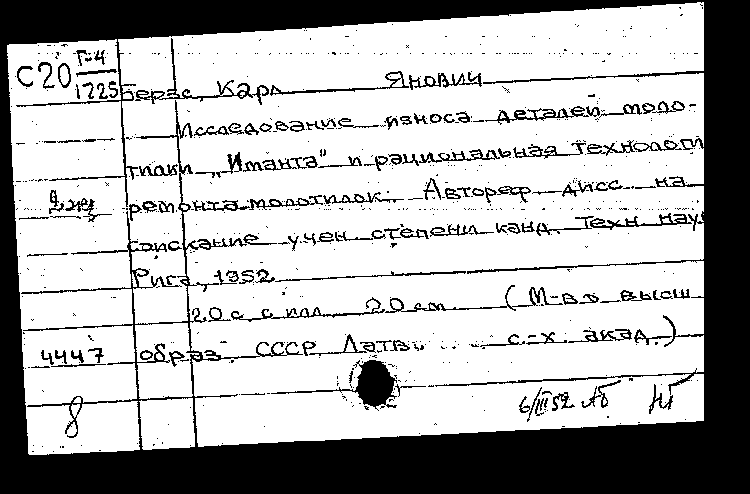 С20 Г-4
1225
Берзс, Карл Янович
Исследование износа деталей моло-
тилки „Иманта" и рациональная технологи
ремонта молотилок. Автореф. дисс. на
соискание учен степени канд. техн. наук
Рига, 1952.
20 с. с илл. 20 см. (М-во высш.
4447 образ. СССР. Латв. с.-х. акад.)
8
6/III 52